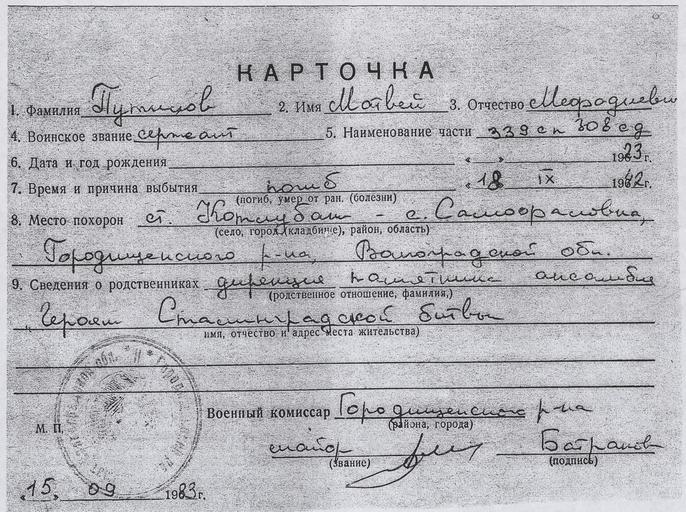 КАРТОЧКА
1. Фамилия Путинцов 2. Имя Матвей 3. Отчество Мефодиевич
4. Воинское звание сержант 5. Наименование части 339 сп 308 сд
6. Дата и год рождения « » 1923г.
7. Время и причина выбытия погиб «18 IX 1942г.
(погиб, умер от ран. (болезни)
8. Место похорон ст. Котлубань - с. Самофаловка,
(село, город (кладбище), район, область)
Городищенского р-на, Волгоградской обл.
9. Сведения о родственниках дирекция памятника ансамбля
(родственное отношение, фамилия,)
"Героям Сталинградской битвы
имя, отчество и адрес места жительства)
Военный комиссар Городищенского р-на
(района, города)
М. П.
майор Батраков
(звание) (подпись)
«15» 09 1983г.